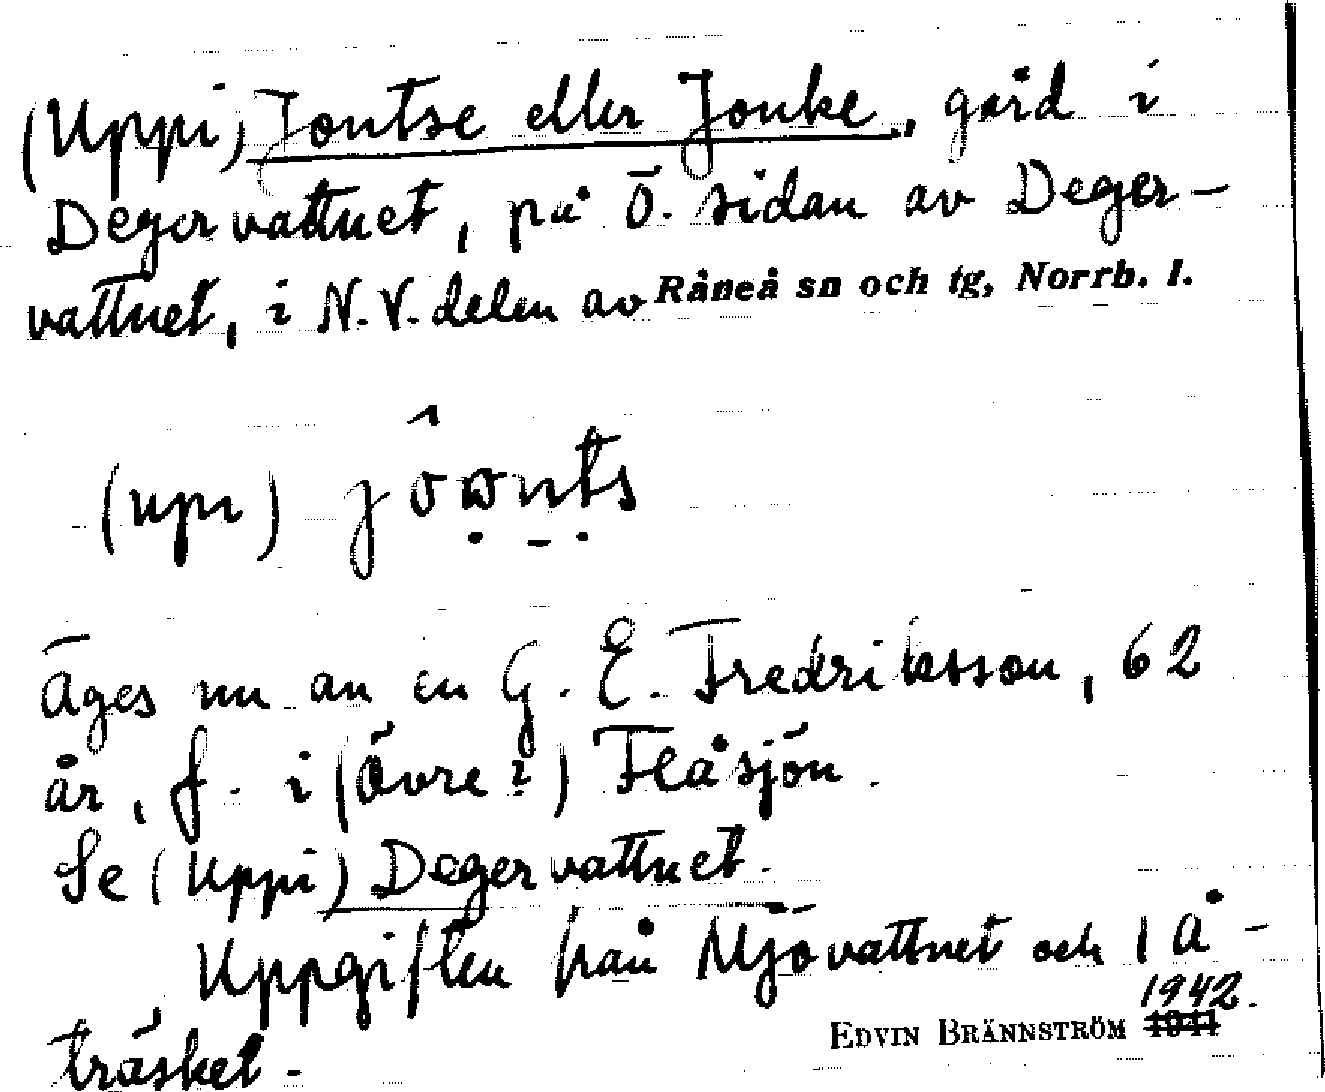 (Uppi) Jontse eller Jonke, gård i
Degervattnet, på ö. sidan av Deger-
vattnet, i N.V. delen av Råneå sn och tg, Norrb. l.
(upi)
Äges nu av en G. E. Fredriksson, 62
år, f. i (Övre?) Flåsjön.
Se (Uppi) Degervattnet.
Uppgiften från Mjövattnet och 1 Å-
träsket.
EDVIN BRÄNNSTRÖM 1941 1942.